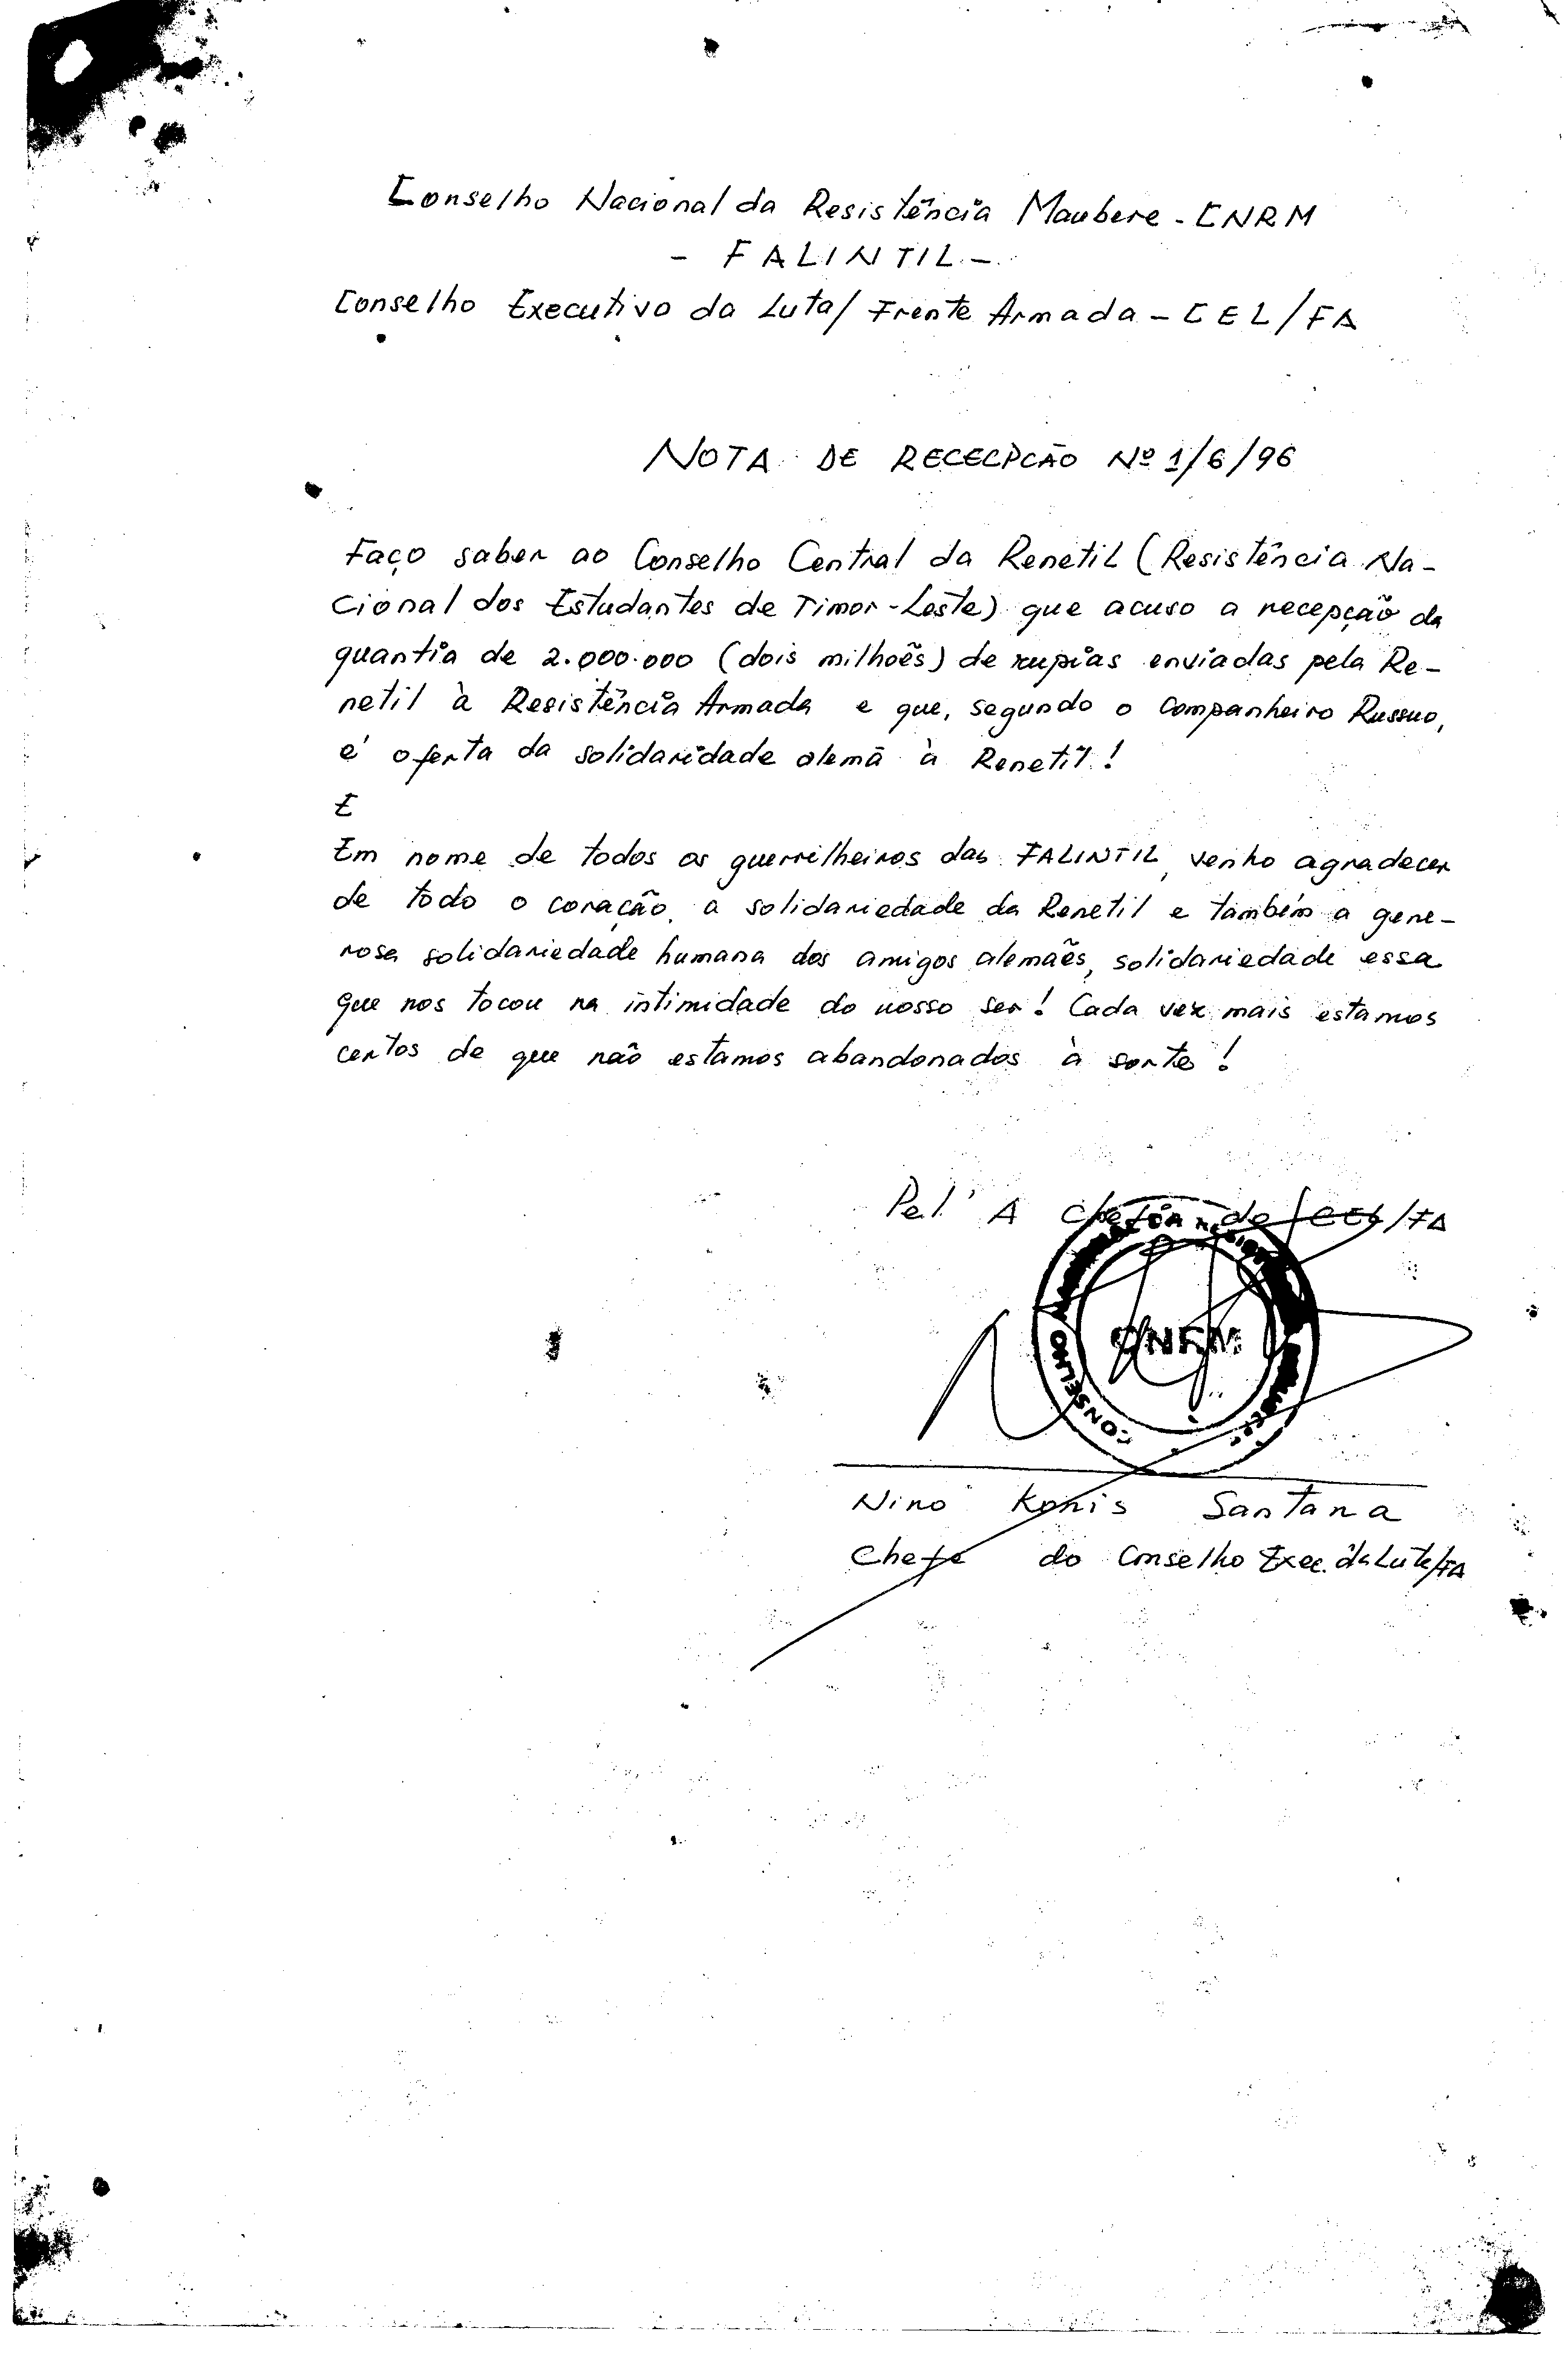 Conselho Nacional da Resistência Maubere - CNRM
- FALINTIL -
Conselho Executivo da Luta/ Frente Armada - CEL/FA
NOTA DE RECECPCÃO Nº 1/6/96
Faço saber ao Conselho Central da Renetil (Resistência Na-
cional dos Estudantes de Timor-Leste) que acuso a recepção da
quantia de 2.000.000 (dois milhões) de rupias enviadas pela Re-
netil à Resistência Armada e que, segundo o Companheiro Russuo,
é oferta da solidaridade alemã à Renetil!
E
Em nome de todos os guerrilheiros das FALINTIL, venho agradecer
de todo o coração, a solidariedade da Renetil e também a gene-
rosa solidariedade humana dos amigos alemães, solidariedade essa
que nos tocou na intimidade do nosso ser! Cada vez mais estamos
certos de que não estamos abandonados à sorte!
Pel' A Chefia do CEL/FA
CONSELHO DA RESIS
CNRM
Nino Konis Santana
Chefe do Conselho Exec. da Luta/FA